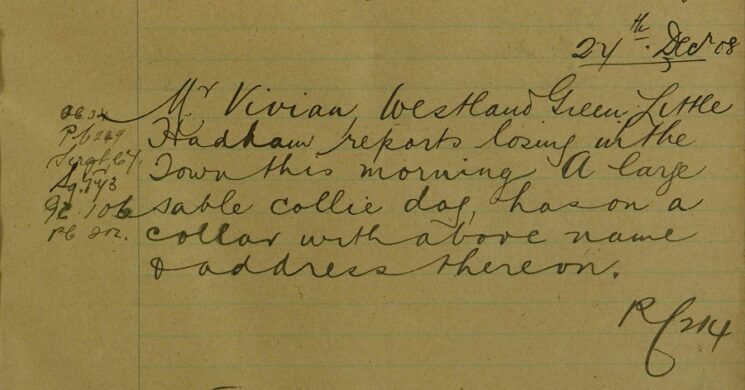 24th. Decr 08
Mr Vivian, Westland Green, Little
Hadham, reports losing in the
Town this morning A large
sable collie dog, has on a
collar with above name
& address thereon.
PC 214
PC 249
PC 202.